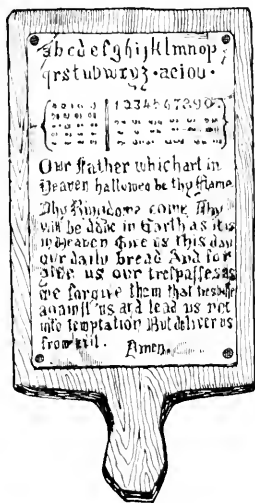 abcdefghijklmnop
qrstuvwxyz · aeiou ·
1234567890
Our Father which art in
Heaven hallowed be thy Name
Thy Kingdome come, Thy
will be done in Earth as it is
in Heaven Give us this day
our daily bread And for
give us our trespasses as
we forgive them that trespasse
against us and lead us not
into temptation But deliver us
from evil. Amen.